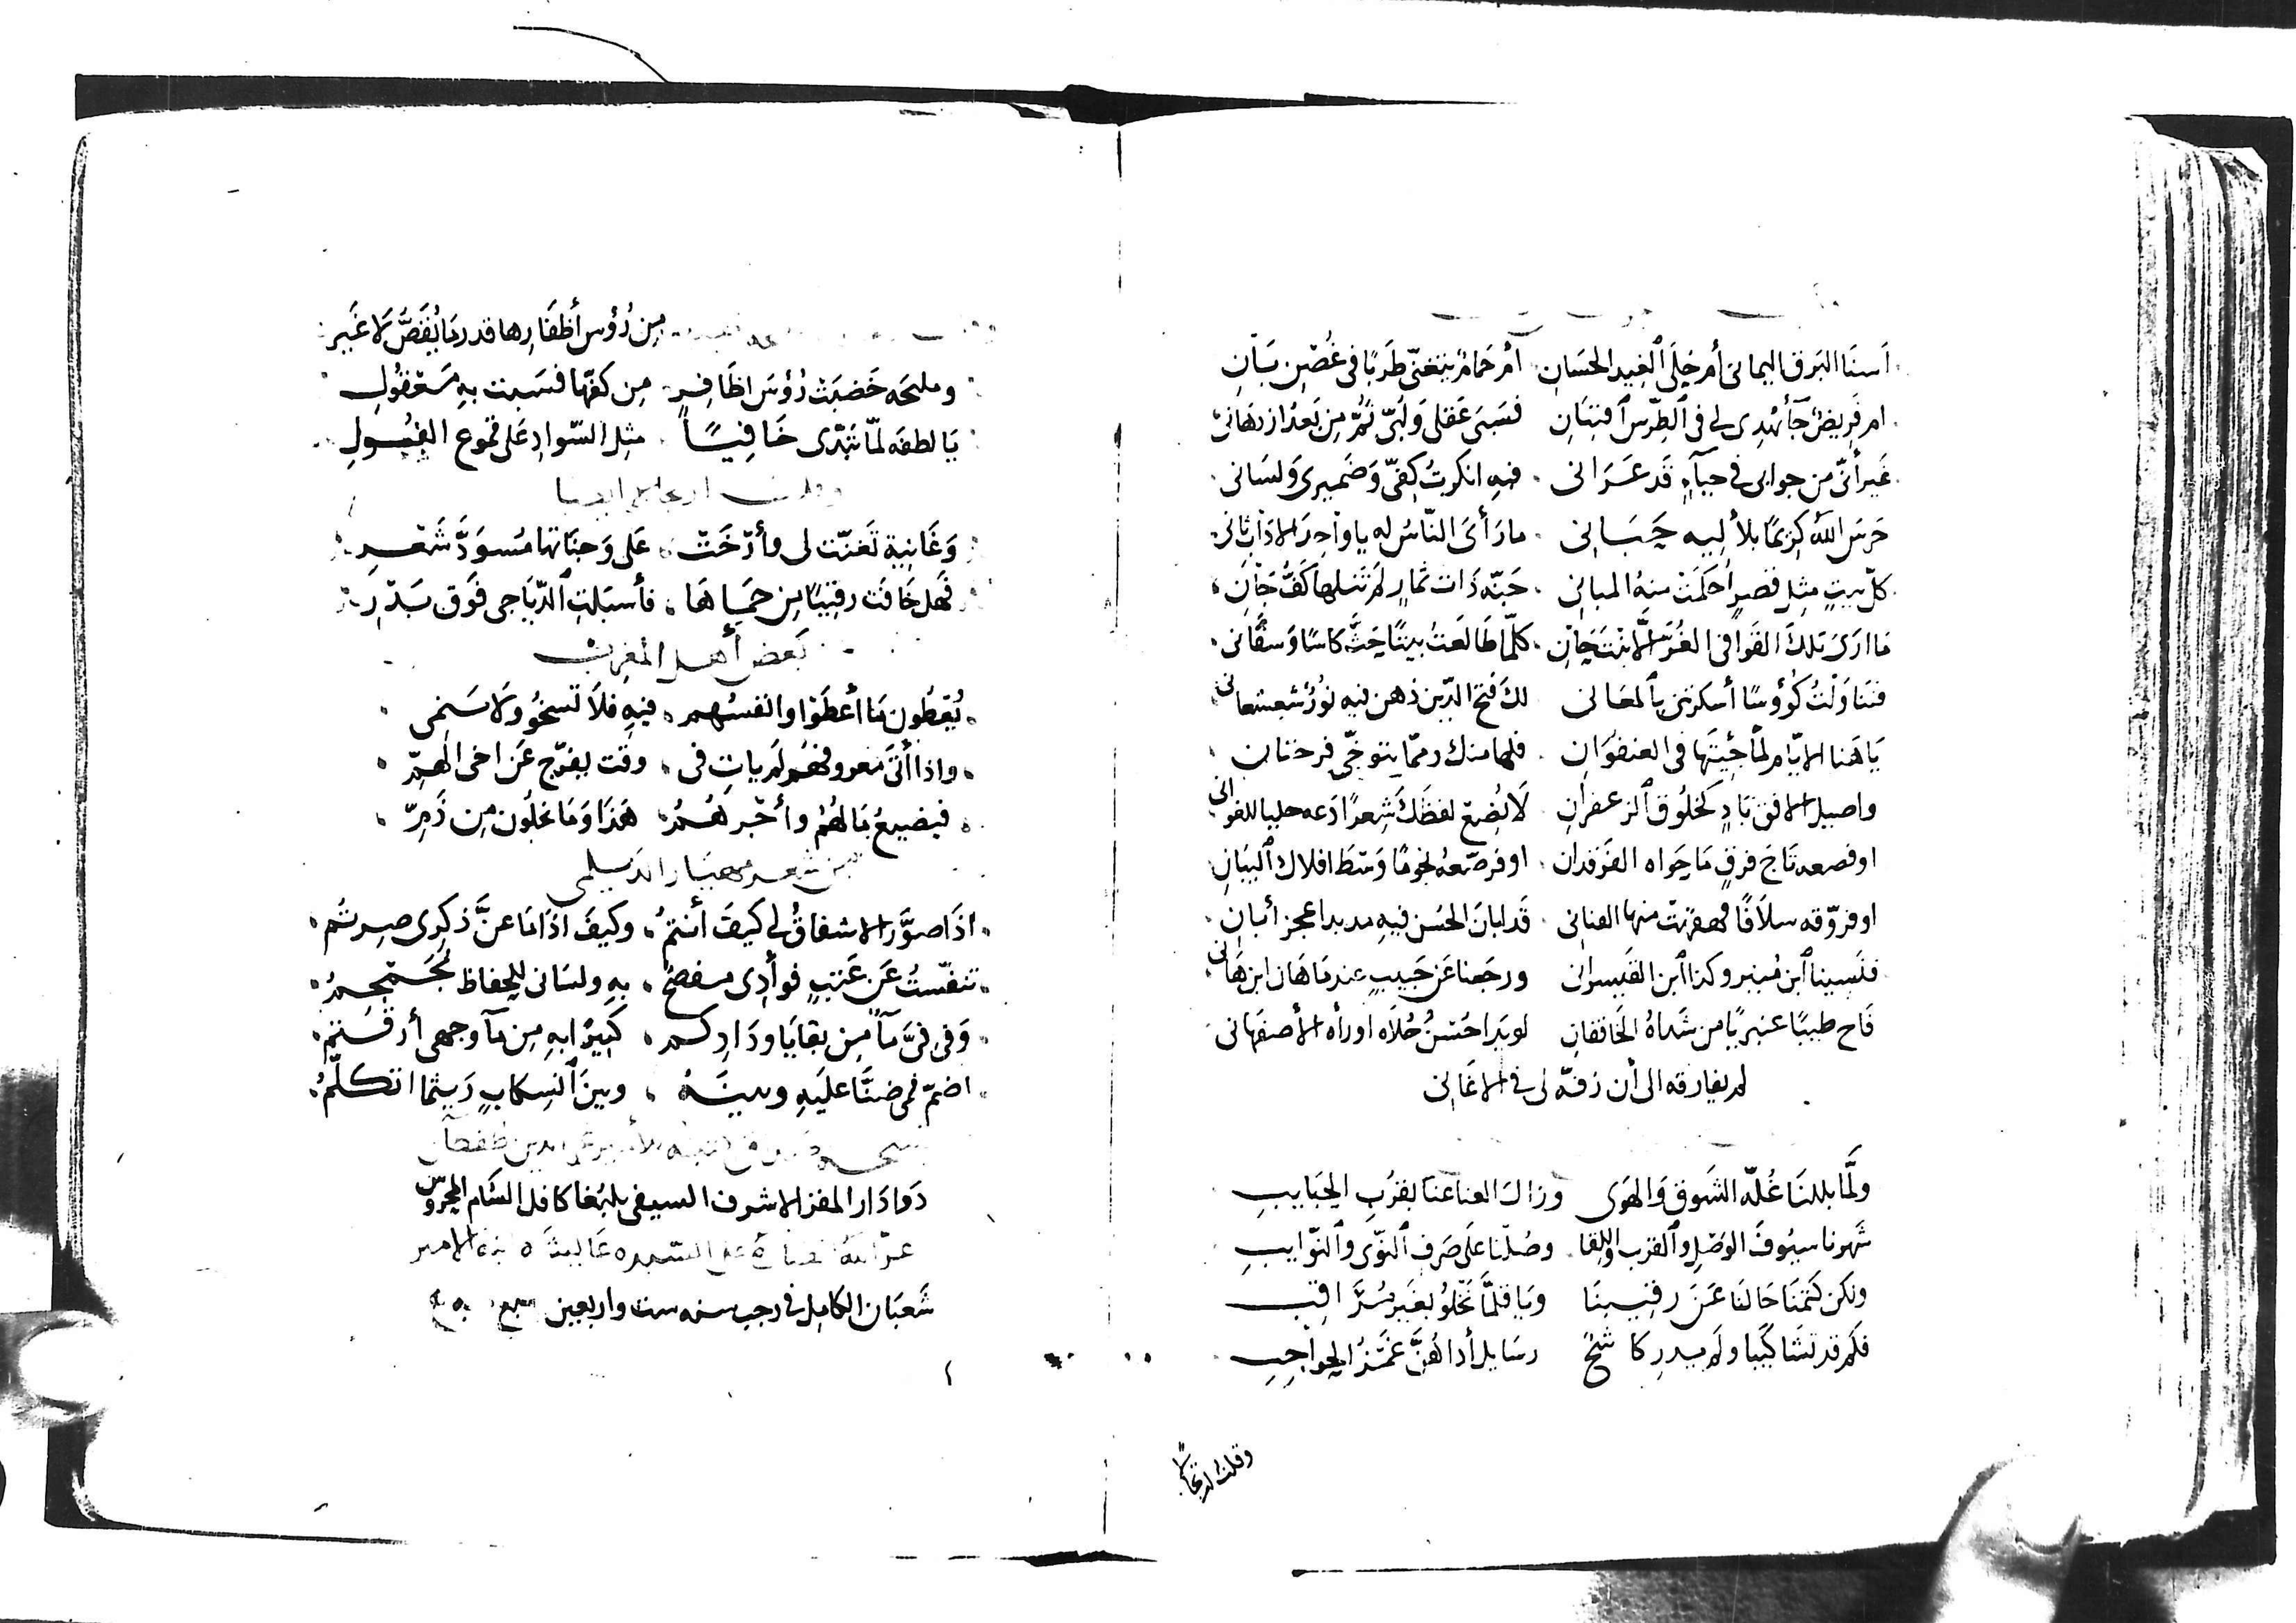 أسنَا البَرق اليمانى أم حِلَى ٱلغِيد الحسَان أم حمَامٌ يتغنّى طَرَبًا فى غُصن بَان
ام قريضٌ جآ يُهدِى لى فى ٱلطِرس ٱفتتَان فسَبَى عَقلى وَلُبّى ثمّ من بَعدُ ازدهَانى
غَير أنّى من جوابى فى حيآءٍ قَد عَرَانى فيهِ انكرتُ كفّى وَضَميرى وَلسَانى
حَرَس اللّه كريمًا بلألِيه حَبَانى ما رَأى النّاسُ له يا واحِدَ الاذاب ثانى
كلّ بيتٍ مثلِ قصرٍ احكمَت منهُ المبانى جنّه ذَات ثمارٍ لم تَنلها كَفُّ جَانِ
مَا ارَى تلكَ القَوافى الغُرّ إلّا بنتَ حَانِ كلّما طَالَعتُ بيتًا حَثَّ كاسًا وَسقَانى
فتنَاوَلتُ كُؤوسًا أسكرتنى بٱلمعَانى لكَ فتح الدّين ذهن فيه نُورٌ شعشعانى
يَا هَنا الايّام لمّا جئِتَها فى العنفوَان فلها منك وممّا يتوخّى فرحتان
واصيل الافق بَادٍ كخَلُوق ٱلزعفران لَا يُضِع لفظكَ شِعرًا دَعه حليا للغوانى
او فصعه تَاجَ فرقٍ مَا حَواه الفَرقدان او فرصّعه نجومًا وَسْطَ افلاك ٱلبيَانِ
او فروّقه سلَافًا قهقهت منها القنانى قَد ابان الحسُن فيهِ مذ بدا عجز أبان
فنَسينا ٱبن مُنير وكذا ٱبن القيسرانى ورجَعنا عَن حَبيبٍ عندمَا هَان ابن هَانى
فَاح طيبًا عنبريًا من شَذاهُ الخَافقانِ لو بدا حُسنُ حُلَاه او رأه الأصفهانى
لم يفارقه الى أن زفّه لى فى الاغَانى
ولَمَّا بللنَا غُلّة الشَوق وَالهوَى وزالَ العنا عنا بقُرب الحبَايبِ
شَهرنا سيُوفَ الوَصْلِ وٱلقرب واللِقا وصُلنا عَلى صَرف ٱلنّوَى وٱلنّوايبِ
ولكن كتمنَا حَالنَا عَن رقيبنَا ويَا قلمّا نَخلُو بغَير مُرَاقب
فلَكم قد تشَاكَينا ولم يدرِ كاشحٌ رسَايل أدّاهُنَّ غَمْزُ الحواجِبِ
وقلت ارتجالاً
من رُؤس أظفَارها قدر مَا يُقَصُّ لا غَير
ومليحَه خَضبَت رُؤسَ اظَافرٍ من كفّها فسَبت بهِ مَعقُولِ
يَا لطفه لمّا تبَدّى خَافيًا مثل السّوادِ عَلى قموع الفُولِ
وقلت ارتجالا ايضا
وَغَانيةٍ تَغنّت لى وأرْخَتْ عَلى وَجنَاتها مُسوَدَّ شَعْر
فَهل خَافَت رقيبًا من حمَاهَا فأسبَلتِ ٱلدّيَاجى فَوق بَدْرِ
بَعض أهل المغرب
يُعطُون مَا أعطَوا وانفسُهم فيهِ فلَا تسخُو ولا سَمى
واذا أتَى معروفهُم لم يات فى وقت يفرّج عَن اخى الهمِّ
فيضيعُ مَالهُم وأجْرهُمُ هَذَا وَمَا يخلُون مِن ذَمِّ
من شعر مهيَار الدّيلمى
اذَا صوَّرَ الاشفاقُ لى كيفَ أنتمُ وكيفَ اذَا مَا عنَّ ذكرى صرتُم
تنفّستُ عَن عَتبٍ فوأدِى مفصحٌ بهِ ولسَانى للحِفاظ مُجَمْجمُ
وَفى فىَّ مآٌ من بقايَا ودَادِكم كَثيرًا بهِ من مآ وجهى أرَقتُم
اضمّ فمى ضنًّا عليَهِ وبينَهُ وبينَ ٱنسِكابٍ رَيثما اتكلّمُ
دَوادَار المقر الاشرف السيفى يلبُغا كافل الشَام المحروس
شَعبَان الكامِل فى رجب سنه ست واربعين